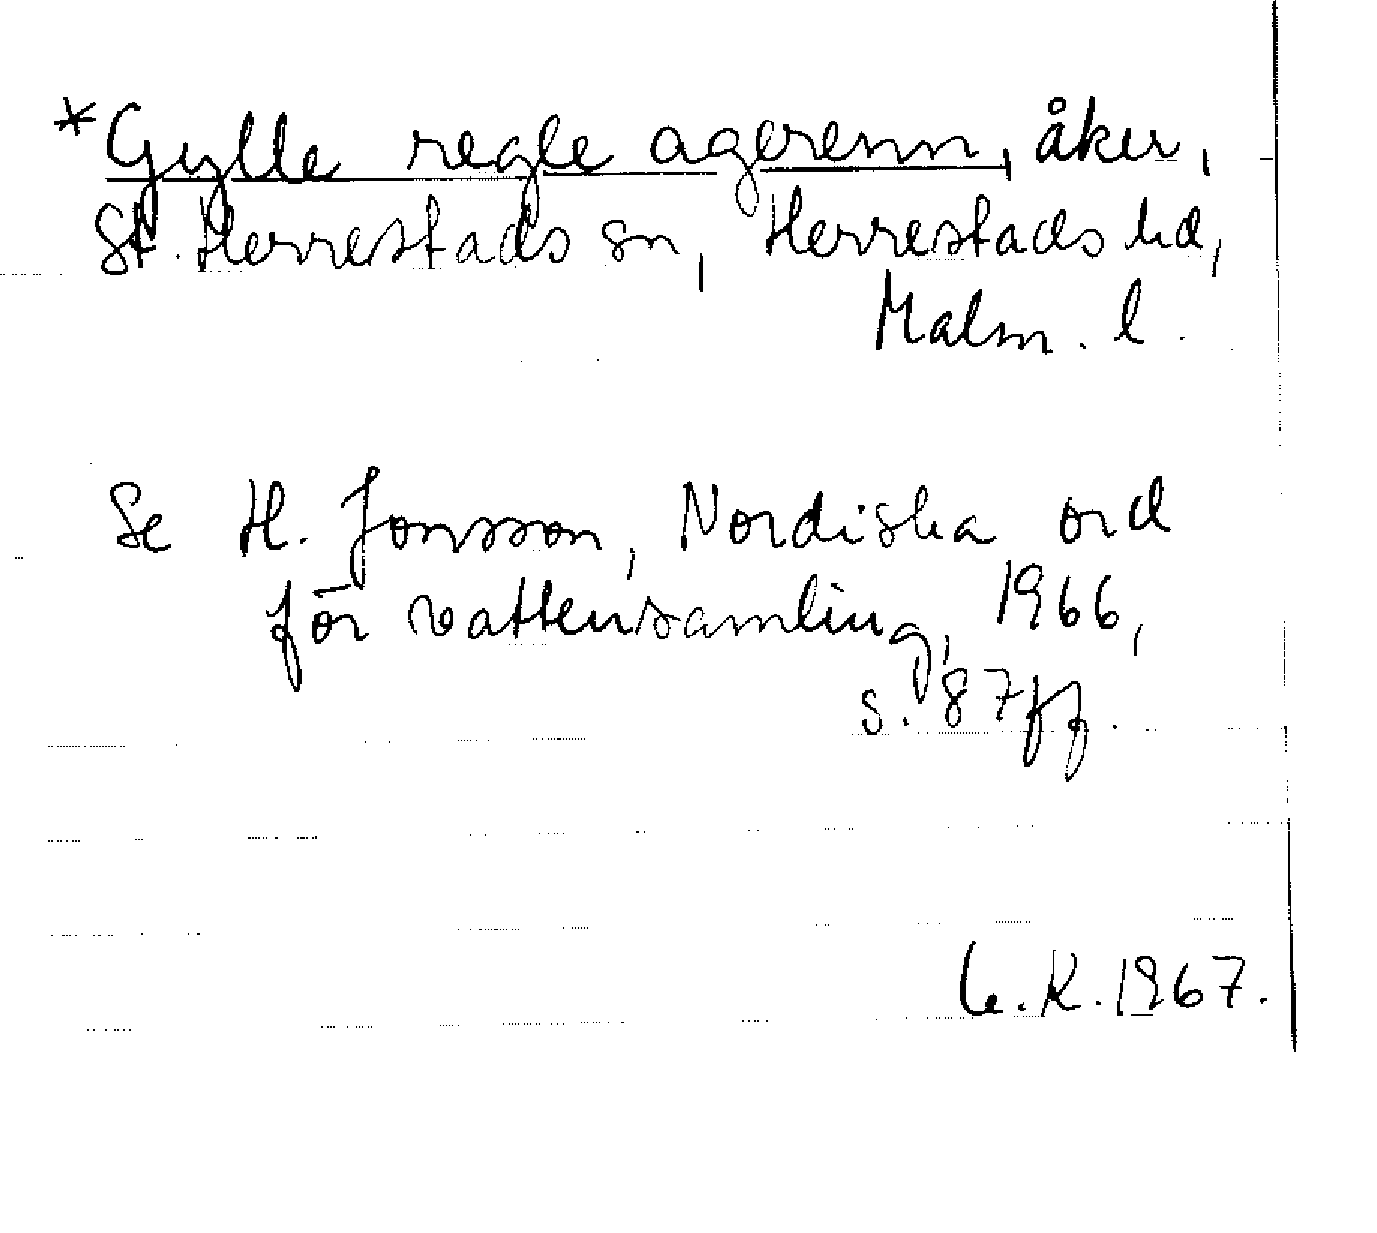 *Gylle regle agerenn, åker,
St. Herrestads sn, Herrestads hd,
Malm. l.
Se H. Jonsson, Nordiska ord
för vattensamling, 1966,
s. 87ff.
G.K. 1967.